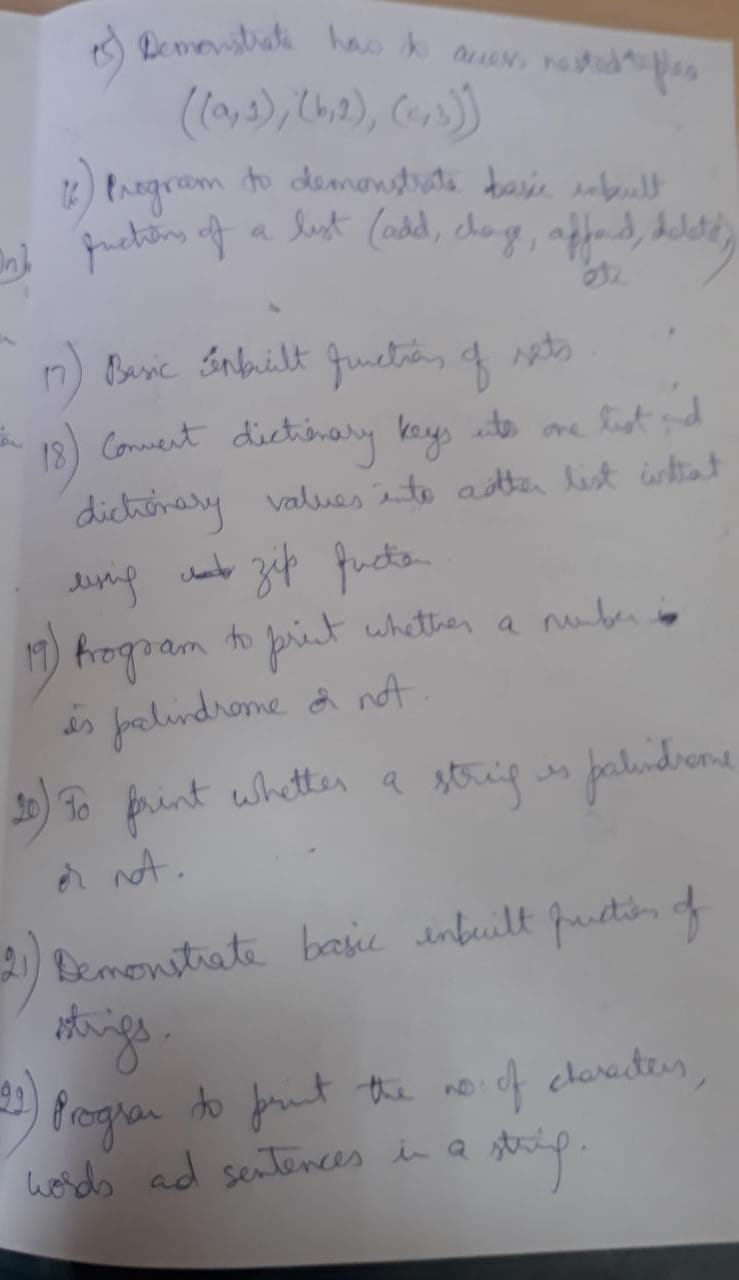 15) Demonstrate how to access nested tuples
((a,1), (b,2), (c,3))
16) Program to demonstrate basic inbuilt
fuctions of a list (add, change, append, delete,
etc
17) Basic inbuilt function of sets.
18) Convert dictionary keys into one list and
dictionary values into another list without
using zip fucton
19) Program to print whether a number
is palindrome or not.
20) To print whether a string is palindrome
or not.
21) Demonstrate basic inbuilt function of
strings.
22) Program to print the no: of characters,
words ad sentences in a string.